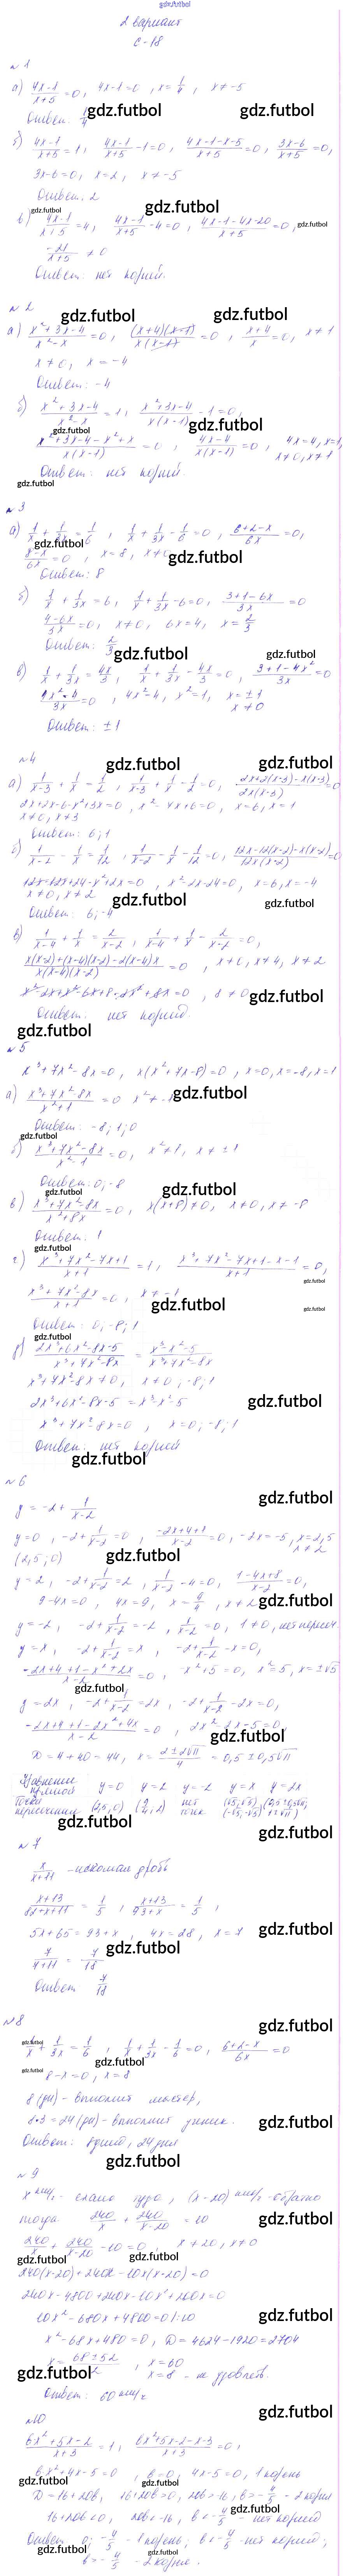 gdz.futbol
2 вариант
С-18
№1
а) (4x-1)/(x+5) = 0, 4x-1=0, x = 1/4, x ≠ -5
Ответ: 1/4
gdz.futbol gdz.futbol
б) (4x-1)/(x+5) = 1, (4x-1)/(x+5) - 1 = 0, (4x-1-x-5)/(x+5) = 0, (3x-6)/(x+5) = 0,
3x-6=0, x=2, x ≠ -5
Ответ: 2
gdz.futbol gdz.futbol
в) (4x-1)/(x+5) = 4, (4x-1)/(x+5) - 4 = 0, (4x-1-4x-20)/(x+5) = 0, gdz.futbol
-21/(x+5) ≠ 0
Ответ: нет корней.
№2
gdz.futbol gdz.futbol
а) (x²+3x-4)/(x²-x) = 0, ((x+4)(x-1))/(x(x-1)) = 0, (x+4)/x = 0, x ≠ 1
x ≠ 0, x = -4
Ответ: -4
б) (x²+3x-4)/(x²-x) = 1, (x²+3x-4)/(x(x-1)) - 1 = 0,
gdz.futbol gdz.futbol
(x²+3x-4-x²+x)/(x(x-1)) = 0, (4x-4)/(x(x-1)) = 0, 4x=4, x=1,
x≠0, x≠1
Ответ: нет корней.
gdz.futbol
№3
а) 1/x + 1/3x = 1/6, 1/x + 1/3x - 1/6 = 0, (6+2-x)/6x = 0,
gdz.futbol
(8-x)/6x = 0, x=8, x≠0 gdz.futbol
Ответ: 8
б) 1/x + 1/3x = 6, 1/x + 1/3x - 6 = 0, (3+1-6x)/3x = 0
(4-6x)/3x = 0, x≠0, 6x=4, x = 2/3
Ответ: 2/3
gdz.futbol gdz.futbol
в) 1/x + 1/3x = 4x/3, 1/x + 1/3x - 4x/3 = 0, (3+1-4x²)/3x = 0
= 0, 4x²=4, x²=1, x = ±1
x ≠ 0
Ответ: ±1
№4
gdz.futbol gdz.futbol
а) 1/(x-3) + 1/x = 1/2, 1/(x-3) + 1/x - 1/2 = 0, (2x+2(x-3)-x(x-3))/(2x(x-3)) = 0
2x+2x-6-x²+3x=0, x²-7x+6=0, x=6, x=1
x≠0, x≠3
Ответ: 6; 1
б) 1/(x-2) - 1/x = 1/12, 1/(x-2) - 1/x - 1/12 = 0, (12x-12(x-2)-x(x-2))/(12x(x-2)) = 0
12x-12x+24-x²+2x=0, x²-2x-24=0, x=6, x=-4
x≠0, x≠2
gdz.futbol gdz.futbol
Ответ: 6; -4
в) 1/(x-4) + 1/x = 2/(x-2), 1/(x-4) + 1/x - 2/(x-2) = 0,
(x(x-2)+(x-4)(x-2)-2(x-4)x)/(x(x-4)(x-2)) = 0, x≠0, x≠4, x≠2
x²-2x+x²-6x+8-2x²+8x=0, 8≠0 gdz.futbol
Ответ: нет корней.
gdz.futbol
№5
x³+7x²-8x=0, x(x²+7x-8)=0, x=0, x=-8, x=1
а) (x³+7x²-8x)/(x²+1) = 0 x² ≠ -1 gdz.futbol
Ответ: -8; 1; 0
gdz.futbol
б) (x³+7x²-8x)/(x²-1) = 0, x²≠1, x≠±1
Ответ: 0; -8
gdz.futbol gdz.futbol
в) (x³+7x²-8x)/(x²+8x) = 0, x(x+8)≠0, x≠0, x≠-8
Ответ: 1
gdz.futbol
г) (x³+7x²-7x+1)/(x+1) = 1, (x³+7x²-7x+1-x-1)/(x+1) = 0,
gdz.futbol
(x³+7x²-8x)/(x+1) = 0, x≠-1
gdz.futbol gdz.futbol
Ответ: 0; -8; 1
gdz.futbol
д) (2x³+6x²-8x-5)/(x³+7x²-8x) = (x³-x²-5)/(x³+7x²-8x)
x³+7x²-8x≠0, x≠0; -8; 1
2x³+6x²-8x-5 = x³-x²-5 gdz.futbol
x³+7x²-8x=0, x=0; -8; 1
Ответ: нет корней
gdz.futbol
№6
gdz.futbol
y = -2 + 1/(x-2)
y=0, -2 + 1/(x-2) = 0, (-2x+4+1)/(x-2) = 0, -2x=-5, x=2,5
x≠2
(2,5; 0) gdz.futbol
y=2, -2 + 1/(x-2) = 2, 1/(x-2) - 4 = 0, (1-4x+8)/(x-2) = 0,
9-4x=0, 4x=9, x = 9/4, x≠2 gdz.futbol
y=-2, -2 + 1/(x-2) = -2, 1/(x-2) = 0, 1≠0, нет пересеч.
y=x, -2 + 1/(x-2) = x, -2 + 1/(x-2) - x = 0,
(-2x+4+1-x²+2x)/(x-2) = 0, -x²+5=0, x²=5, x=±√5
gdz.futbol
y=2x, -2 + 1/(x-2) = 2x, -2 + 1/(x-2) - 2x = 0,
(-2x+4+1-2x²+4x)/(x-2) = 0, 2x²-2x-5=0, gdz.futbol
D=4+40=44, x = (2±2√11)/4 = 0,5±0,5√11
Уравнение прямой y=0 y=2 y=-2 y=x y=2x
Точки пересечения (2,5; 0) (9/4; 2) нет точек (√5; √5) (-√5; -√5) (0,5±0,5√11; 1±√11)
gdz.futbol gdz.futbol
№7
x/(x+11) - искомая дробь
(x+13)/(82+x+11) = 1/5, (x+13)/(93+x) = 1/5,
5x+65=93+x, 4x=28, x=7 gdz.futbol
7/(7+11) = 7/18 gdz.futbol
Ответ 7/18
№8 gdz.futbol
gdz.futbol
1/x + 1/3x = 1/6, 1/x + 1/3x - 1/6 = 0, (6+2-x)/6x = 0
gdz.futbol
gdz.futbol 8-x=0, x=8
8 (дн) - выполнит мастер,
8·3=24 (дн) - выполнит ученик. gdz.futbol
Ответ: 8 дней, 24 дня
gdz.futbol
№9
x км/ч - ехало туда, (x-20) км/ч - обратно
тогда 240/x + 240/(x-20) = 10 gdz.futbol
240/x + 240/(x-20) - 10 = 0, x≠20, x≠0
gdz.futbol gdz.futbol
240(x-20)+240x-10x(x-20)=0
240x-4800+240x-10x²+200x=0
10x²-680x+4800=0 |:10 gdz.futbol
x²-68x+480=0, D=4624-1920=2704
x = (68±52)/2, x=60
gdz.futbol x=8 - не удовлетв.
Ответ: 60 км/ч
№10 gdz.futbol
(6x²+5x-2)/(x+3) = 1, (6x²+5x-2-x-3)/(x+3) = 0,
6x²+4x-5=0, 6=0, 4x-5=0, 1 корень
gdz.futbol gdz.futbol
D=16+20b, 16+20b>0, 20b>-16, b>-4/5 - 2 корня
16+20b<0, 20b<-16, b<-4/5 - нет корней
gdz.futbol
Ответ: 0; -4/5 - 1 корень; b<-4/5 - нет корней;
b>-4/5 - 2 корня.
gdz.futbol gdz.futbol